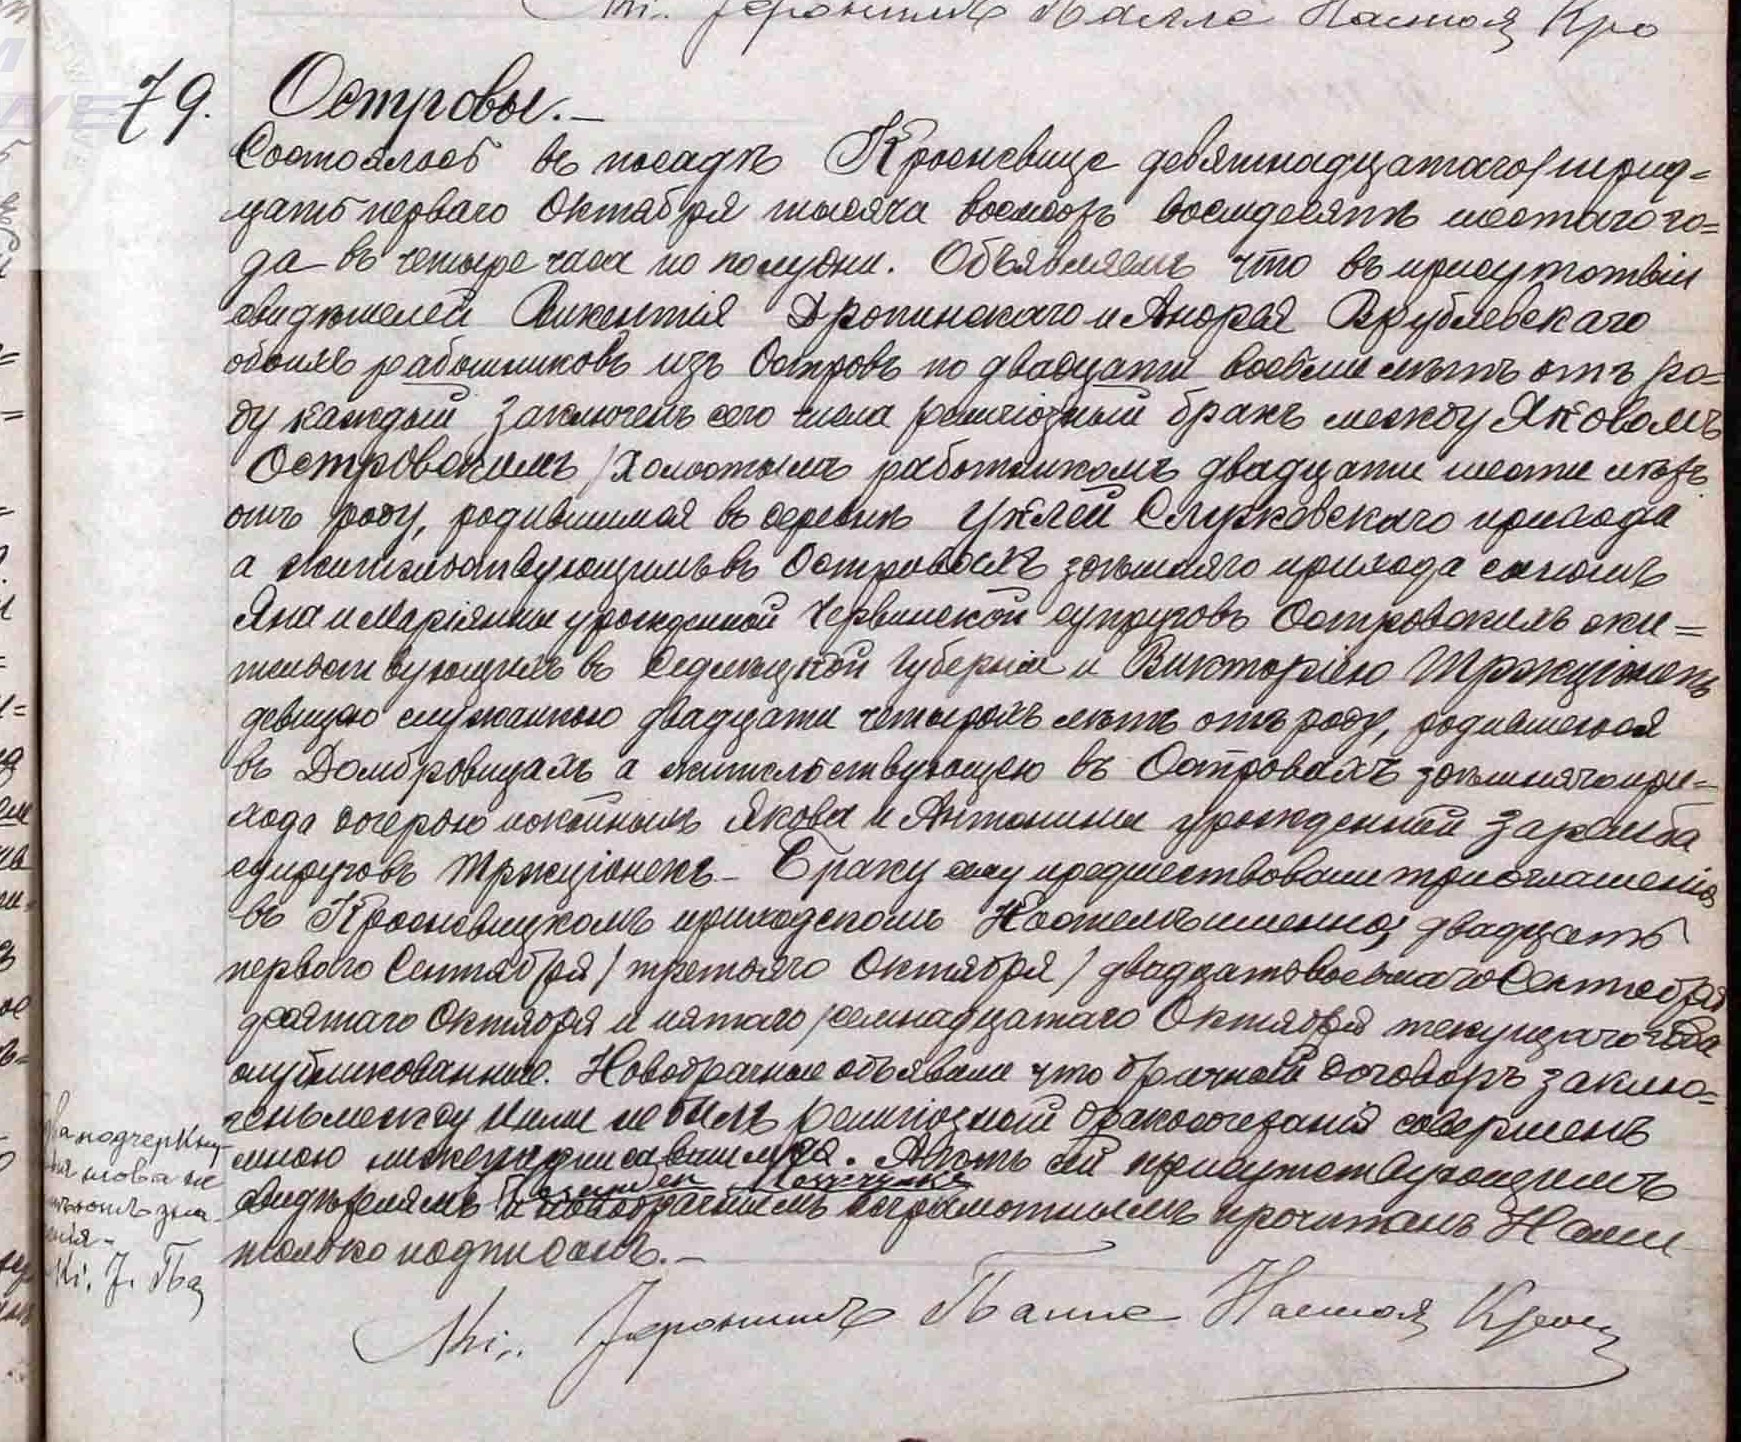 Іеронимъ Настоя Кро
79. Островы.—
Состоялось въ посадѣ Кросневице девятнадцатаго/трид=
цать перваго Октября тысяча восемсотъ восемдесятъ шестаго го=
да въ четыре часа по полудни. Объявляемъ что въ присутствіи
свидѣтелей Викентія Дропинскаго и Андрея Врублевскаго
обоихъ работниковъ изъ Островъ по двадцати восьми лѣтъ отъ ро=
ду каждый заключенъ сего числа религіозный бракъ между Яковомъ
Островскимъ, холостымъ работникомъ двадцати шести лѣтъ
отъ роду, родившимся въ деревнѣ прихода
а жительствующимъ въ Островахъ здѣшняго прихода сыномъ
Яна и Маріянны урожденной Червинской супруговъ Островскихъ жи=
тельствующихъ въ Седлецкой Губерніи и Викторіею Тржціонекъ
девицею служанкою двадцати четырехъ лѣтъ отъ роду, родившеюся
въ Домбровицахъ а жительствующею въ Островахъ здѣшняго при=
хода дочерью покойныхъ Якова и Антонины урожденной Заремба
супруговъ Тржціонекъ — Браку сему предшествовали три оглашенія
въ Кросневицкомъ приходскомъ Костелѣ именно; двадцать
перваго Сентября / третьяго Октября / двадцать восьмаго Сентября
десятаго Октября и пятаго / семнадцатаго Октября текущаго года
опубликованные. Новобрачные объявили что брачный договоръ заклю=
ченъ между ними не былъ религіозный бракосочетанія совершенъ
мною нижеподписавшимся. Актъ сей присутствующимъ
свидѣтелямъ и новобрачнымъ неграмотнымъ прочитанъ Нами
только подписанъ.—
Два подчеркну-
тыя слова не
имѣютъ зна-
ченія—
Кі. І. Па
Іеронимъ Настоя Крос